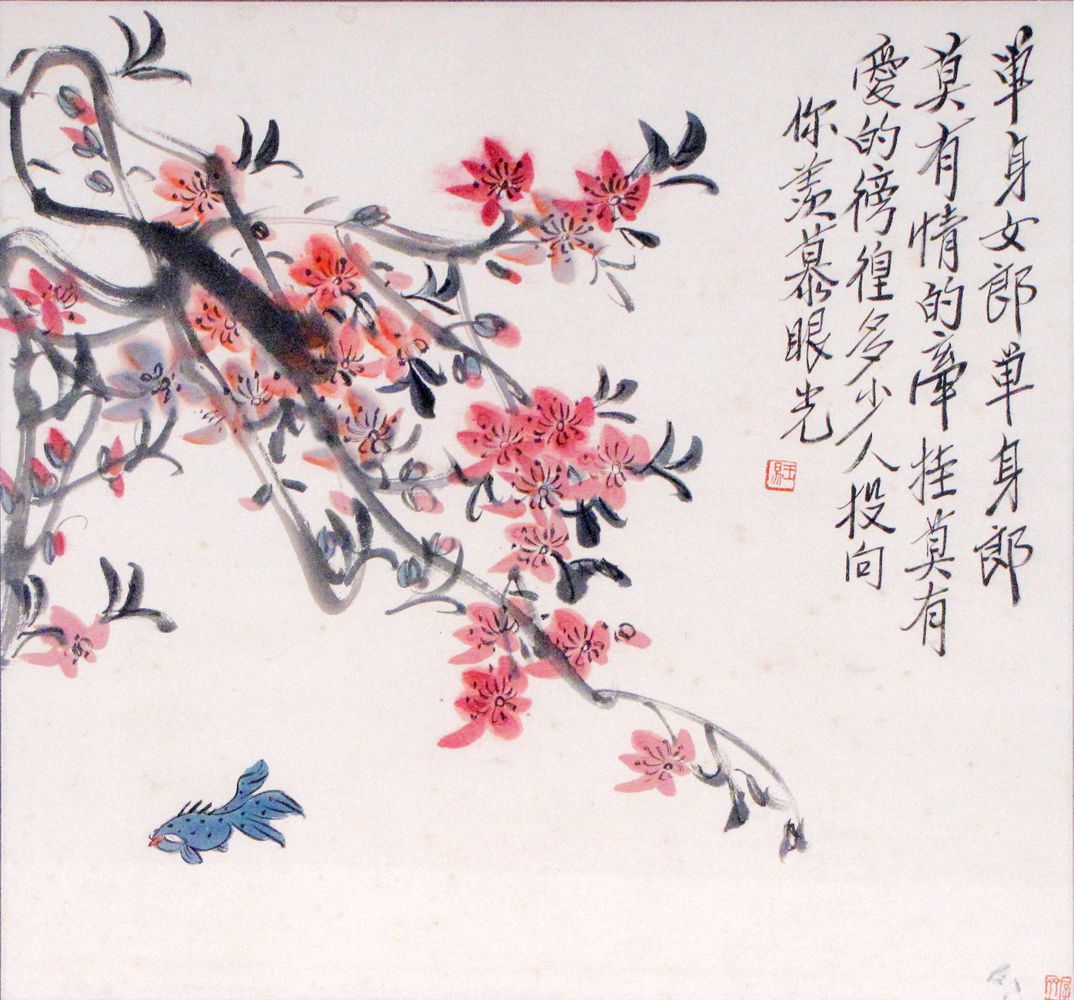 单身女郎单身郎
莫有情的牵挂莫有
爱的徬徨多少人投向
你羡慕眼光